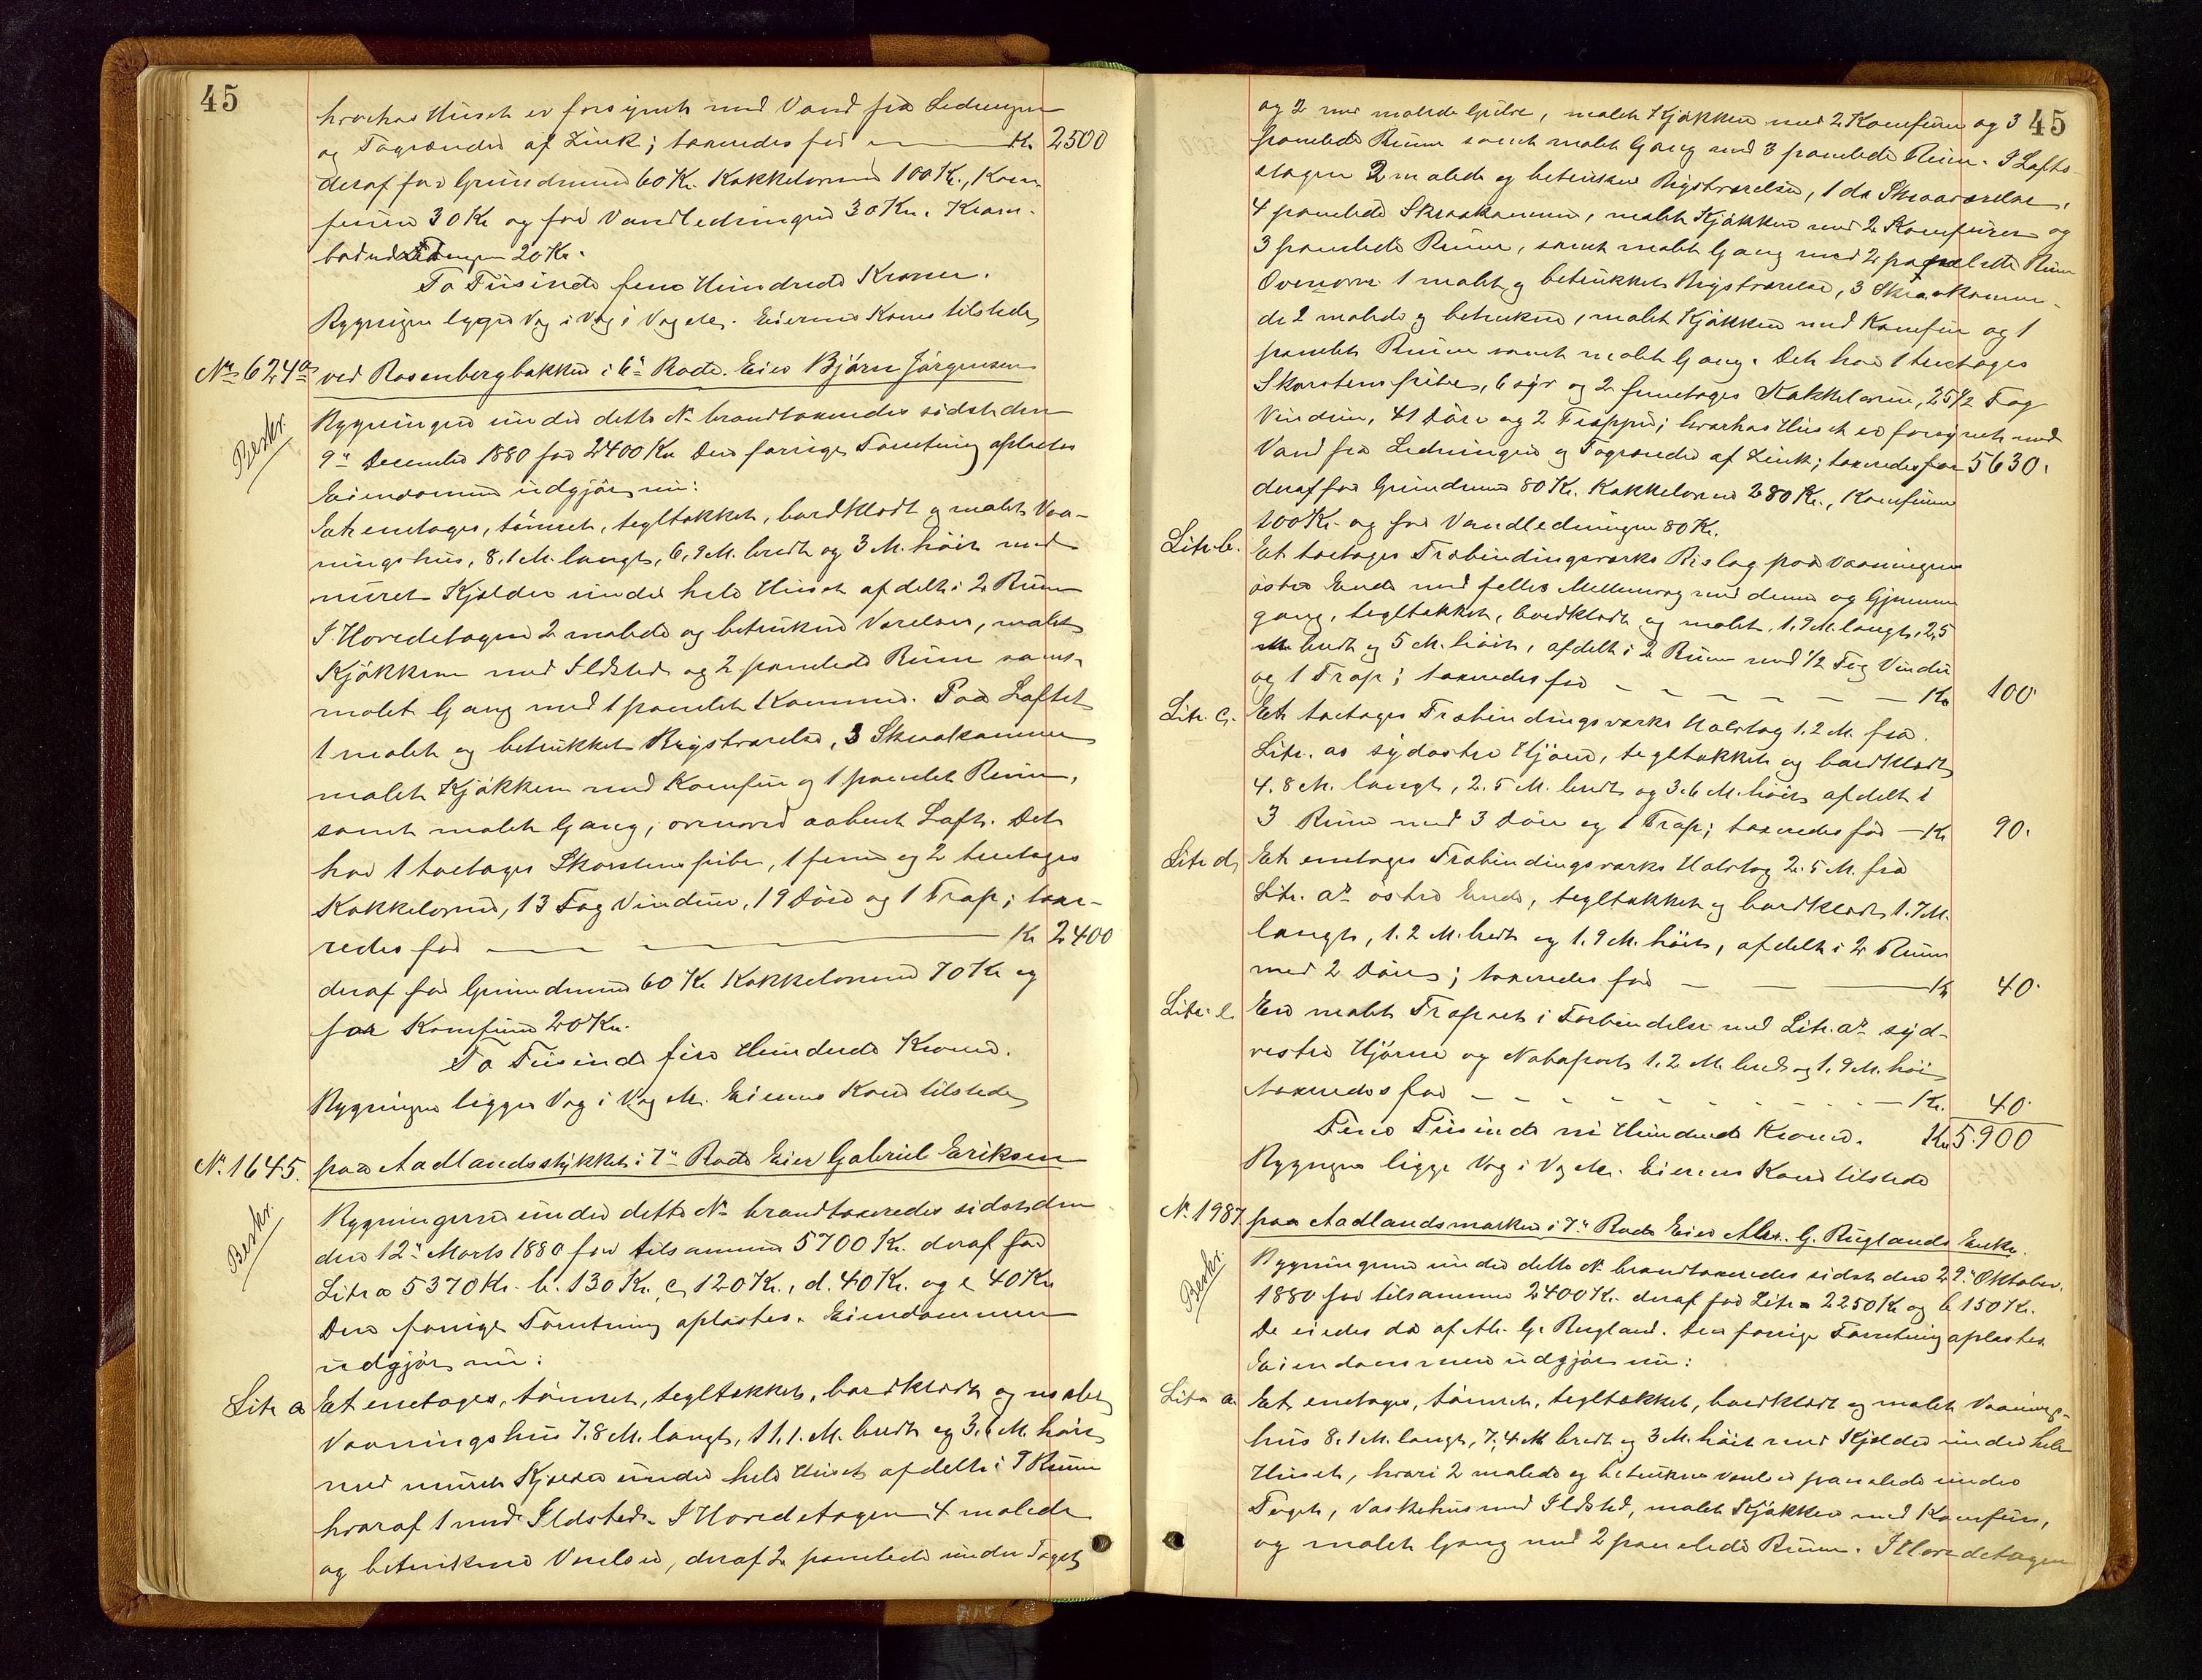 45
hvorhos Huset er forsynet med Vand fra Ledningen
og Tagrender af Zink; taxeredes for Kr. 2500
deraf for Grundmur 60 Kr. Kakkelovne 100 Kr., Kom-
furer 30 Kr og for Vandledningen 30 Kr.
20 Kr.
To Tusinde fem Hundrede Kroner.
Bygningen ligger Væg i Væg i Væg etc. Eierens Kone tilstede
No 624a ved Rosenbergbakken i 6te Rode. Eier Bjørn Jørgensen
Beskr.
Bygningen under dette No brandtaxeredes sidst den
9de December 1880 for 2400 Kr Den forrige Forretning oplæstes
Eiendommen udgjør nu:
Et enetages, tømret, tegltækket, bordklædt og malet Vaa-
ningshus, 8,1 M. langt, 6,9 M. bredt og 3 M. høit med
muret Kjælder under hele Huset afdelt i 2 Rum
I Hovedetagen 2 malede og betrukne Værelser, malet
Kjøkken med Ildsted og 2 panelede Rum samt
malet Gang med 1 panelet Kammer. Paa Loftet
1 malet og betrukket Kvistværelse, 3 Skraakammer
malet Kjøkken med Komfur og 1 panelet Rum,
samt malet Gang, ovenover aabent Loft. Det
har 1 toetages Skorstenspibe, 1 femr og 2 treetages
Kakkelovne, 13 Fag Vinduer, 19 Døre og 1 Trap; taxe-
redes for Kr 2400
deraf for Grundmur 60 Kr Kakkelovne 70 Kr og
for Komfuren 20 Kr.
To Tusinde fire Hundrede Kroner.
Bygningen ligger Væg i Væg etc. Eierens Kone tilstede
No. 1645. paa Aadlandsstykket i 7de Rode Eier Gabriel Eriksen
Beskr.
Bygningerne under dette No brandtaxeredes sidst den
den 12te Marts 1880 for tilsammen 5700 Kr. deraf for
Litr a 5370 Kr. b. 130 Kr. c 120 Kr., d. 40 Kr. og e 40 Kr
Den forrige Forretning oplæstes. Eiendommen
udgjør nu:
Litr a Et enetages, tømret, tegltækket, bordklædt og malet
Vaaningshus 7.8 M. langt, 11.1. M. bredt og 3.6 M. høit
med muret Kjælder under hele Huset afdelt i 7 Rum
hvoraf 1 med Ildsted. I Hovedetagen 4 malede
og betrukne Værelser, deraf 2 panelede under Taget
45
og 2 malede Gulve, malet Kjøkken med 2 Komfurer og 3
panelede Rum samt malet Gang med 3 panelede Rum. I Lofts-
etagen 2 malede og betrukne Kvistværelser, 1 do Skraaværelse,
4 panelede Skraakammer, malet Kjøkken med 2 Komfurer og
3 panelede Rum, samt malet Gang med 2 panelede Rum
Ovenover 1 malet og betrukket Kvistværelse, 3 Skraakammer
de 2 malede og betrukne, malet Kjøkken med Komfur og 1
panelet Rum samt malet Gang. Det har 1 treetages
Skorstenspibe, 6 og 2 femetages Kakkelovne, 25 1/2 Fag
Vinduer, 41 Døre og 2 Trapper; hvorhos Huset er forsynet med
Vand fra Ledningen og Tagrender af Zink; taxeredes for 5630.
deraf for Grundmur 80 Kr. Kakkelovne 280 Kr., Komfurer
100 Kr. og for Vandledningen 80 Kr.
Litr b. Et toetages Træbindingsværks Bislag paa Vaaningens
østre Ende med fælles Mellemvæg med denne og Gjennem
gang, tegltækket, bordklædt og malet, 1.9 M. langt, 2,5
M. bredt og 5 M. høit, afdelt i 2 Rum med 1/2 Fag Vindu
og 1 Trap; taxeredes for Kr 100.
Litr. c. Et toetages Træbindingsværks Halvtag 1.2 M. fra
Litr. as sydøstre Hjørne, tegltækket og bordklædt
4.8 M. langt, 2.5 M. bredt og 3.6 M. høit afdelt i
3 Rum med 3 Døre og 1 Trap; taxeredes for Kr 90.
Litr d. Et enetages Træbindingsværks Halvtag 2.5 M. fra
Litr. as østre Ende, tegltækket og bordklædt, 1.7 M.
langt, 1.2 M. bredt og 1.9 M. høit, afdelt i 2 Rum
med 2 Døre; taxeredes for Kr 40.
Litr. e. En malet Træport i Forbindelse med Litr. as syd-
vestre Hjørne og Naboport 1.2 M. bred og 1.9 M. høi
taxeredes for Kr. 40.
Fem Tusinde ni Hundrede Kroner. Kr 5900
Bygningen ligger Væg i Væg etc. Eierens Kone tilstede
No. 1987. paa Aadlandsmarken i 7de Rode Eier Alex. G. Ruglands Enke.
Beskr.
Bygningerne under dette No brandtaxeredes sidst den 29de Oktober
1880 for tilsammen 2400 Kr. deraf for Litr a 2250 Kr og b 150 Kr.
De eiedes da af Al. G. Rugland. Den forrige Forretning oplæstes
Eiendommen udgjør nu:
Litr a. Et enetages, tømret, tegltækket, bordklædt og malet Vaanings-
hus 8.1 M. langt, 7.4 M bredt og 3 M. høit med Kjælder under hele
Huset, hvori 2 malede og betrukne Værelser panelede under
Taget, Vaskehus med Ildsted, malet Kjøkken med Komfur,
og malet Gang med 2 panelede Rum. I Hovedetagen